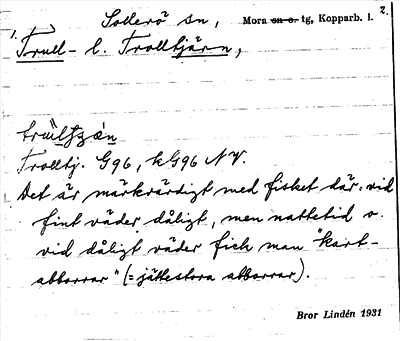 Sollerö sn, Mora sn o. tg, Kopparb. l. 2.
1. Trull- l. Trolltjärn,
Trolltj. G96, kG96 NV.
Det är märkvärdigt med fisket där. vid
fint väder dåligt, men nattetid o.
vid dåligt väder fick man "kart-
abborrar" (= jättestora abborrar).
Bror Lindén 1931